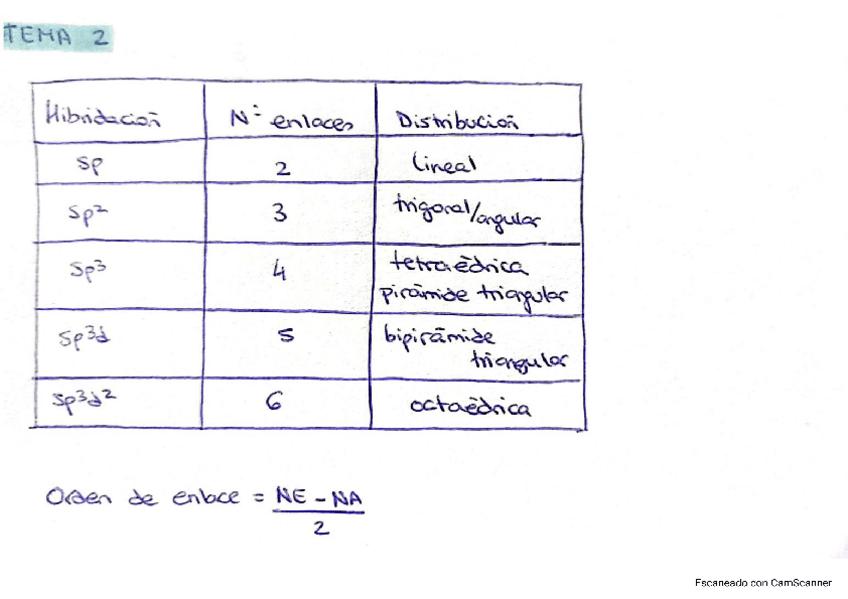 TEMA 2
Hibridación Nº enlaces Distribución
sp 2 lineal
sp² 3 trigonal/angular
sp³ 4 tetraédrica
pirámide triangular
sp³d 5 bipirámide
triangular
sp³d² 6 octaédrica
Orden de enlace = NE - NA
2
Escaneado con CamScanner